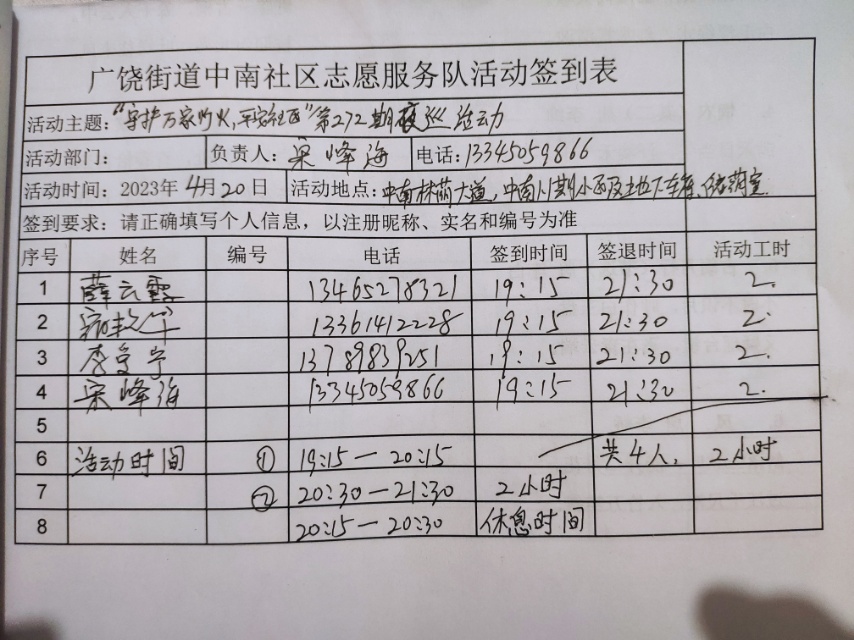 广饶街道中南社区志愿服务队活动签到表
活动主题:"守护万家灯火,平安社区"第272期夜巡活动
活动部门: 负责人:宋峰海 电话:13345059866
活动时间:2023年4月20日 活动地点:中南林荫大道,中南川期小区及地下车库、储藏室
签到要求:请正确填写个人信息,以注册昵称、实名和编号为准
序号 姓名 编号 电话 签到时间 签退时间 活动工时
1 薛云霞 13465278321 19:15 21:30 2.
2 13361412228 19:15 21:30 2.
3 李学宁 13789839251 19:15 21:30 2.
4 宋峰海 13345059866 19:15 21:30 2.
5
6 活动时间 ① 19:15—20:15 共4人, 2小时
7 ② 20:30—21:30 2小时
8 20:15—20:30 休息时间